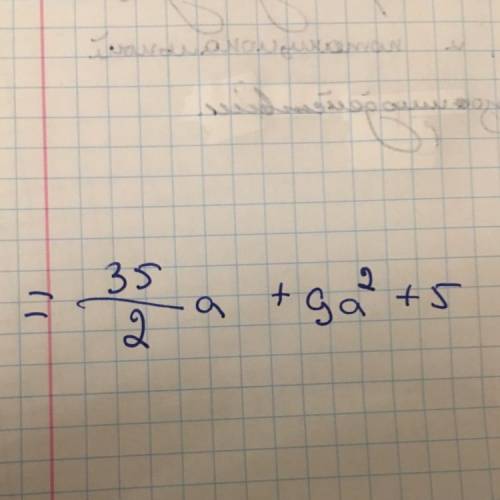 = 35/2 a + 9a² + 5